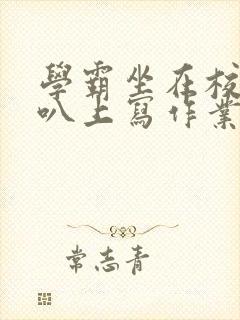 學霸坐在校
叭上寫作業
常志青